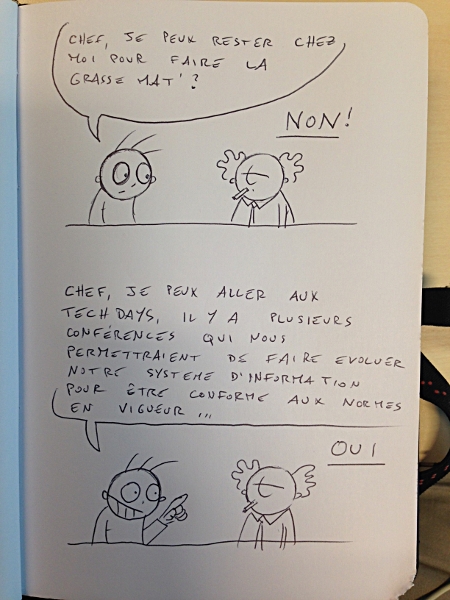 CHEF, JE PEUX RESTER CHEZ
MOI POUR FAIRE LA
GRASSE MAT' ?
NON!
CHEF, JE PEUX ALLER AUX
TECH DAYS, IL Y A PLUSIEURS
CONFÉRENCES QUI NOUS
PERMETTRAIENT DE FAIRE EVOLUER
NOTRE SYSTEME D'INFORMATION
POUR ÊTRE CONFORME AUX NORMES
EN VIGUEUR ...
OUI